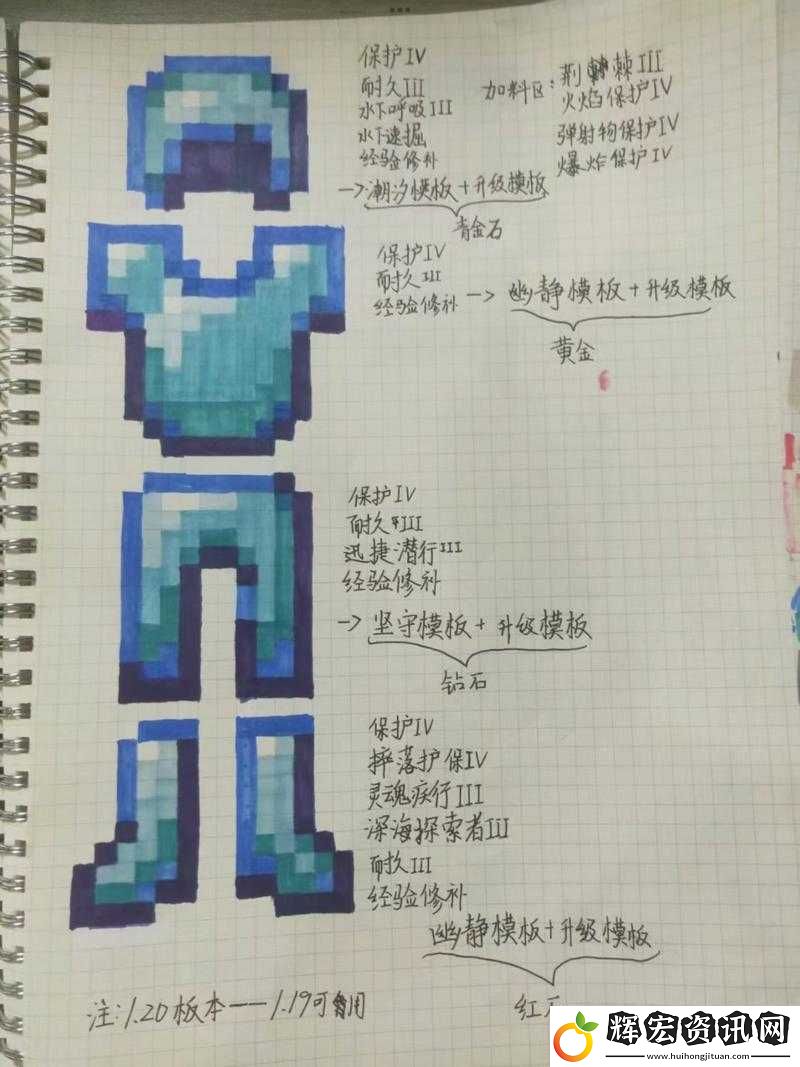 保护IV
耐久III
水下呼吸III
水下速掘
经验修补
加料区:荆棘III
火焰保护IV
弹射物保护IV
爆炸保护IV
->潮汐模板+升级模板
青金石
保护IV
耐久III
经验修补->幽静模板+升级模板
黄金
保护IV
耐久III
迅捷潜行III
经验修补
->坚守模板+升级模板
钻石
保护IV
摔落护保IV
灵魂疾行III
深海探索者III
耐久III
经验修补
幽静模板+升级模板
红
注:1.20板本——1.19可用
辉宏资讯网
www.huihongjituan.com